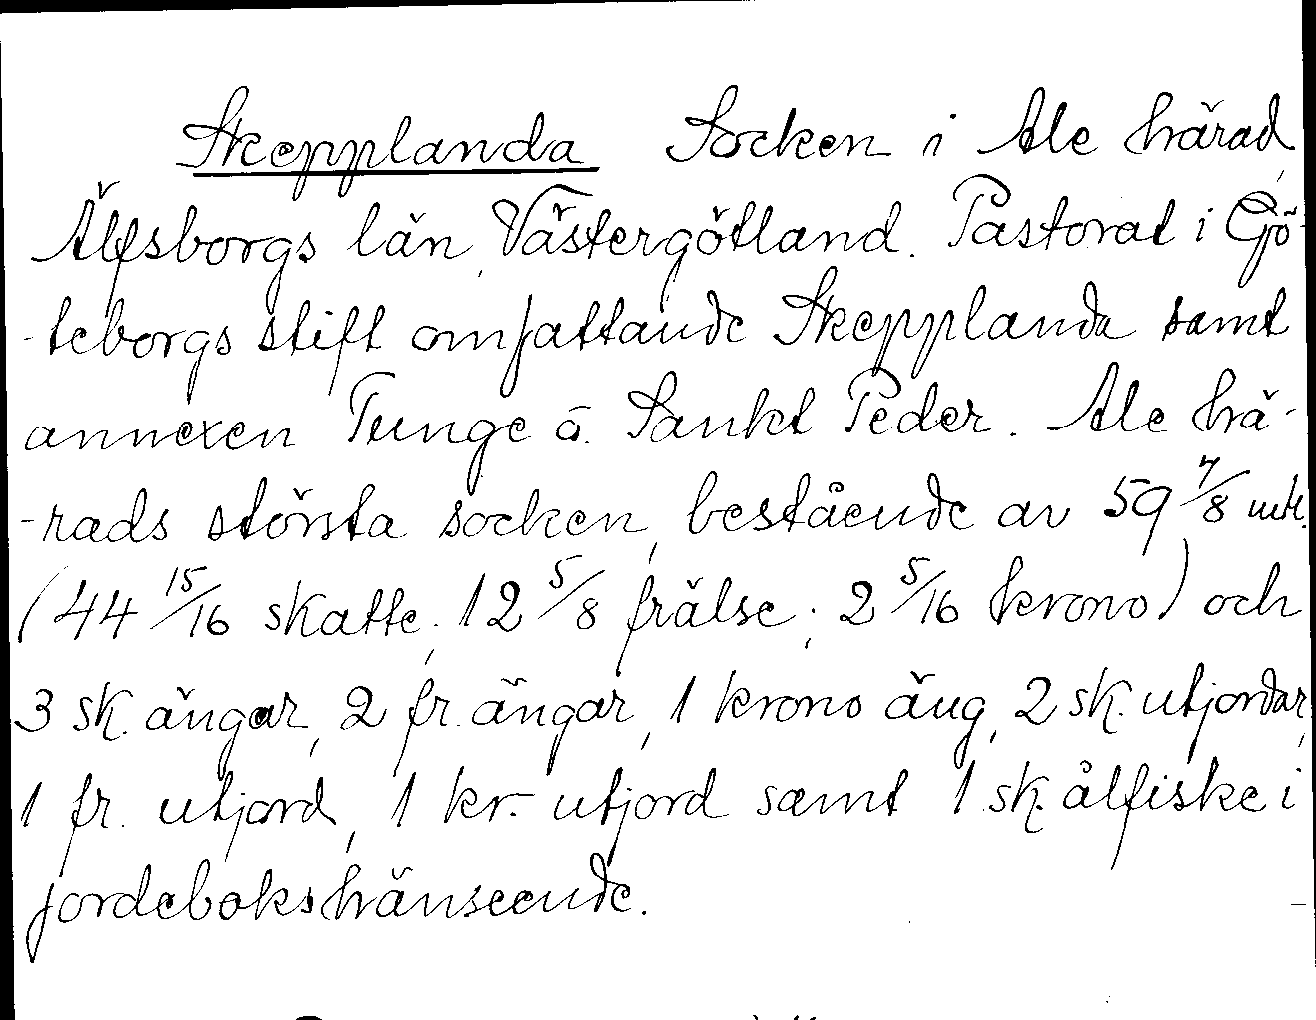 Skepplanda Socken i Ale härad,
Älfsborgs län, Västergötland. Pastorat i Gö-
-teborgs stift omfattande Skepplanda samt
annexen Tunge o. Sankt Peder. Ale hä-
-rads största socken, bestående av 59 7/8 mtl.
(44 15/16 skatte, 12 5/8 frälse, 2 5/16 krono) och
3 sk. ängar, 2 fr. ängar, 1 krono äng, 2 sk. utjordar,
1 fr. utjord, 1 kr. utjord samt 1 sk. ålfiske i
jordebokshänseende.